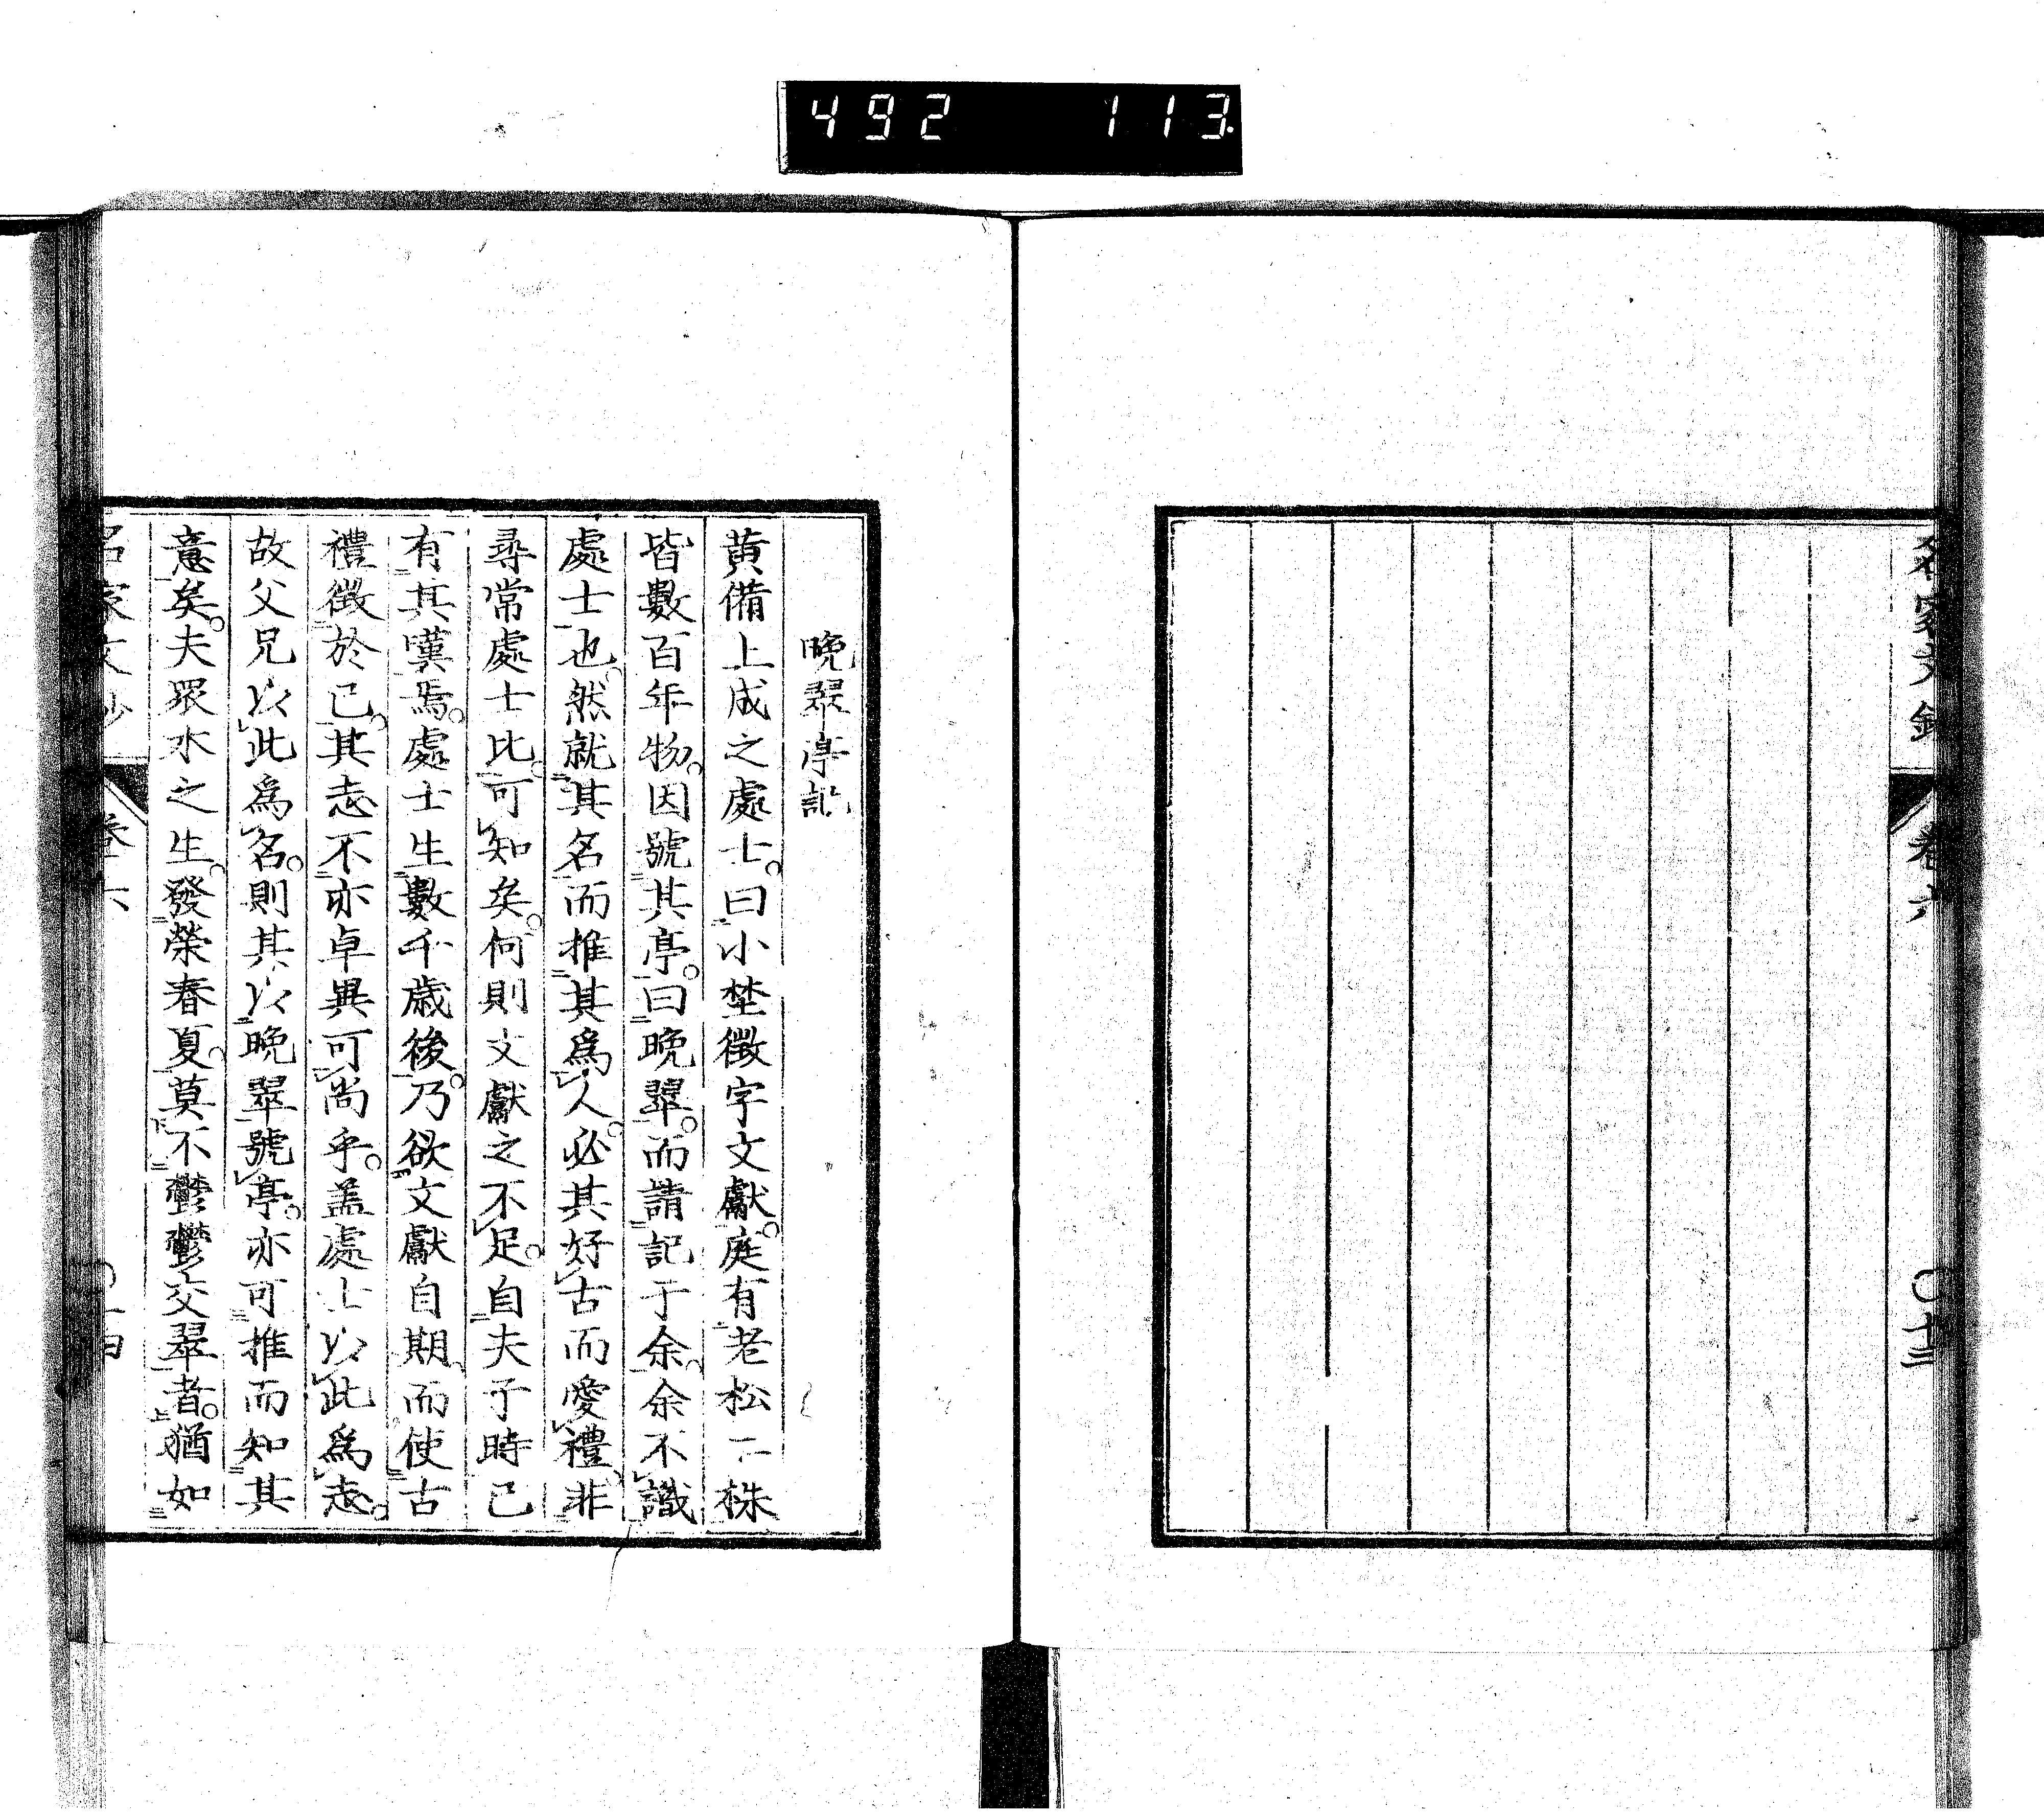 492 113
名家文鈔
卷六
〇十三
晩翠亭記
黄備上成之處士。曰小埜徵字文獻。庭有老松二株
皆數百年物。因號其亭。曰晩翠。而請記于余。余不識
處士也。然就其名而推其爲人。必其好古而愛禮。非
尋常處士比。可知矣。何則文獻之不足。自夫子時已
有其嘆焉。處士生數千歳後。乃欲文獻自期。而使古
禮徵於已。其志不亦卓異可尚乎。盖處士以此爲志。
故父兄以此爲名。則其以晩翠號亭。亦可推而知其
意矣。夫衆水之生。發榮春夏。莫不鬱鬱交翠者。猶如
名家文鈔
卷六
〇十四